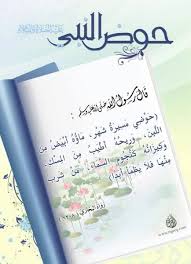 حوض النبي
عليه الصلاة والسلام
قال رسول الله صلى الله عليه وسلم :
(حَوْضِي مَسِيرَةُ شَهْرٍ، مَاؤُهُ أَبْيَضُ مِنَ
اللَّبَنِ، وَرِيحُهُ أَطْيَبُ مِنَ الْمِسْكِ،
وَكِيزَانُهُ كَنُجُومِ السَّمَاءِ، مَنْ شَرِبَ
مِنْهَا فَلَا يَظْمَأُ أَبَدًا)
رواه البخاري